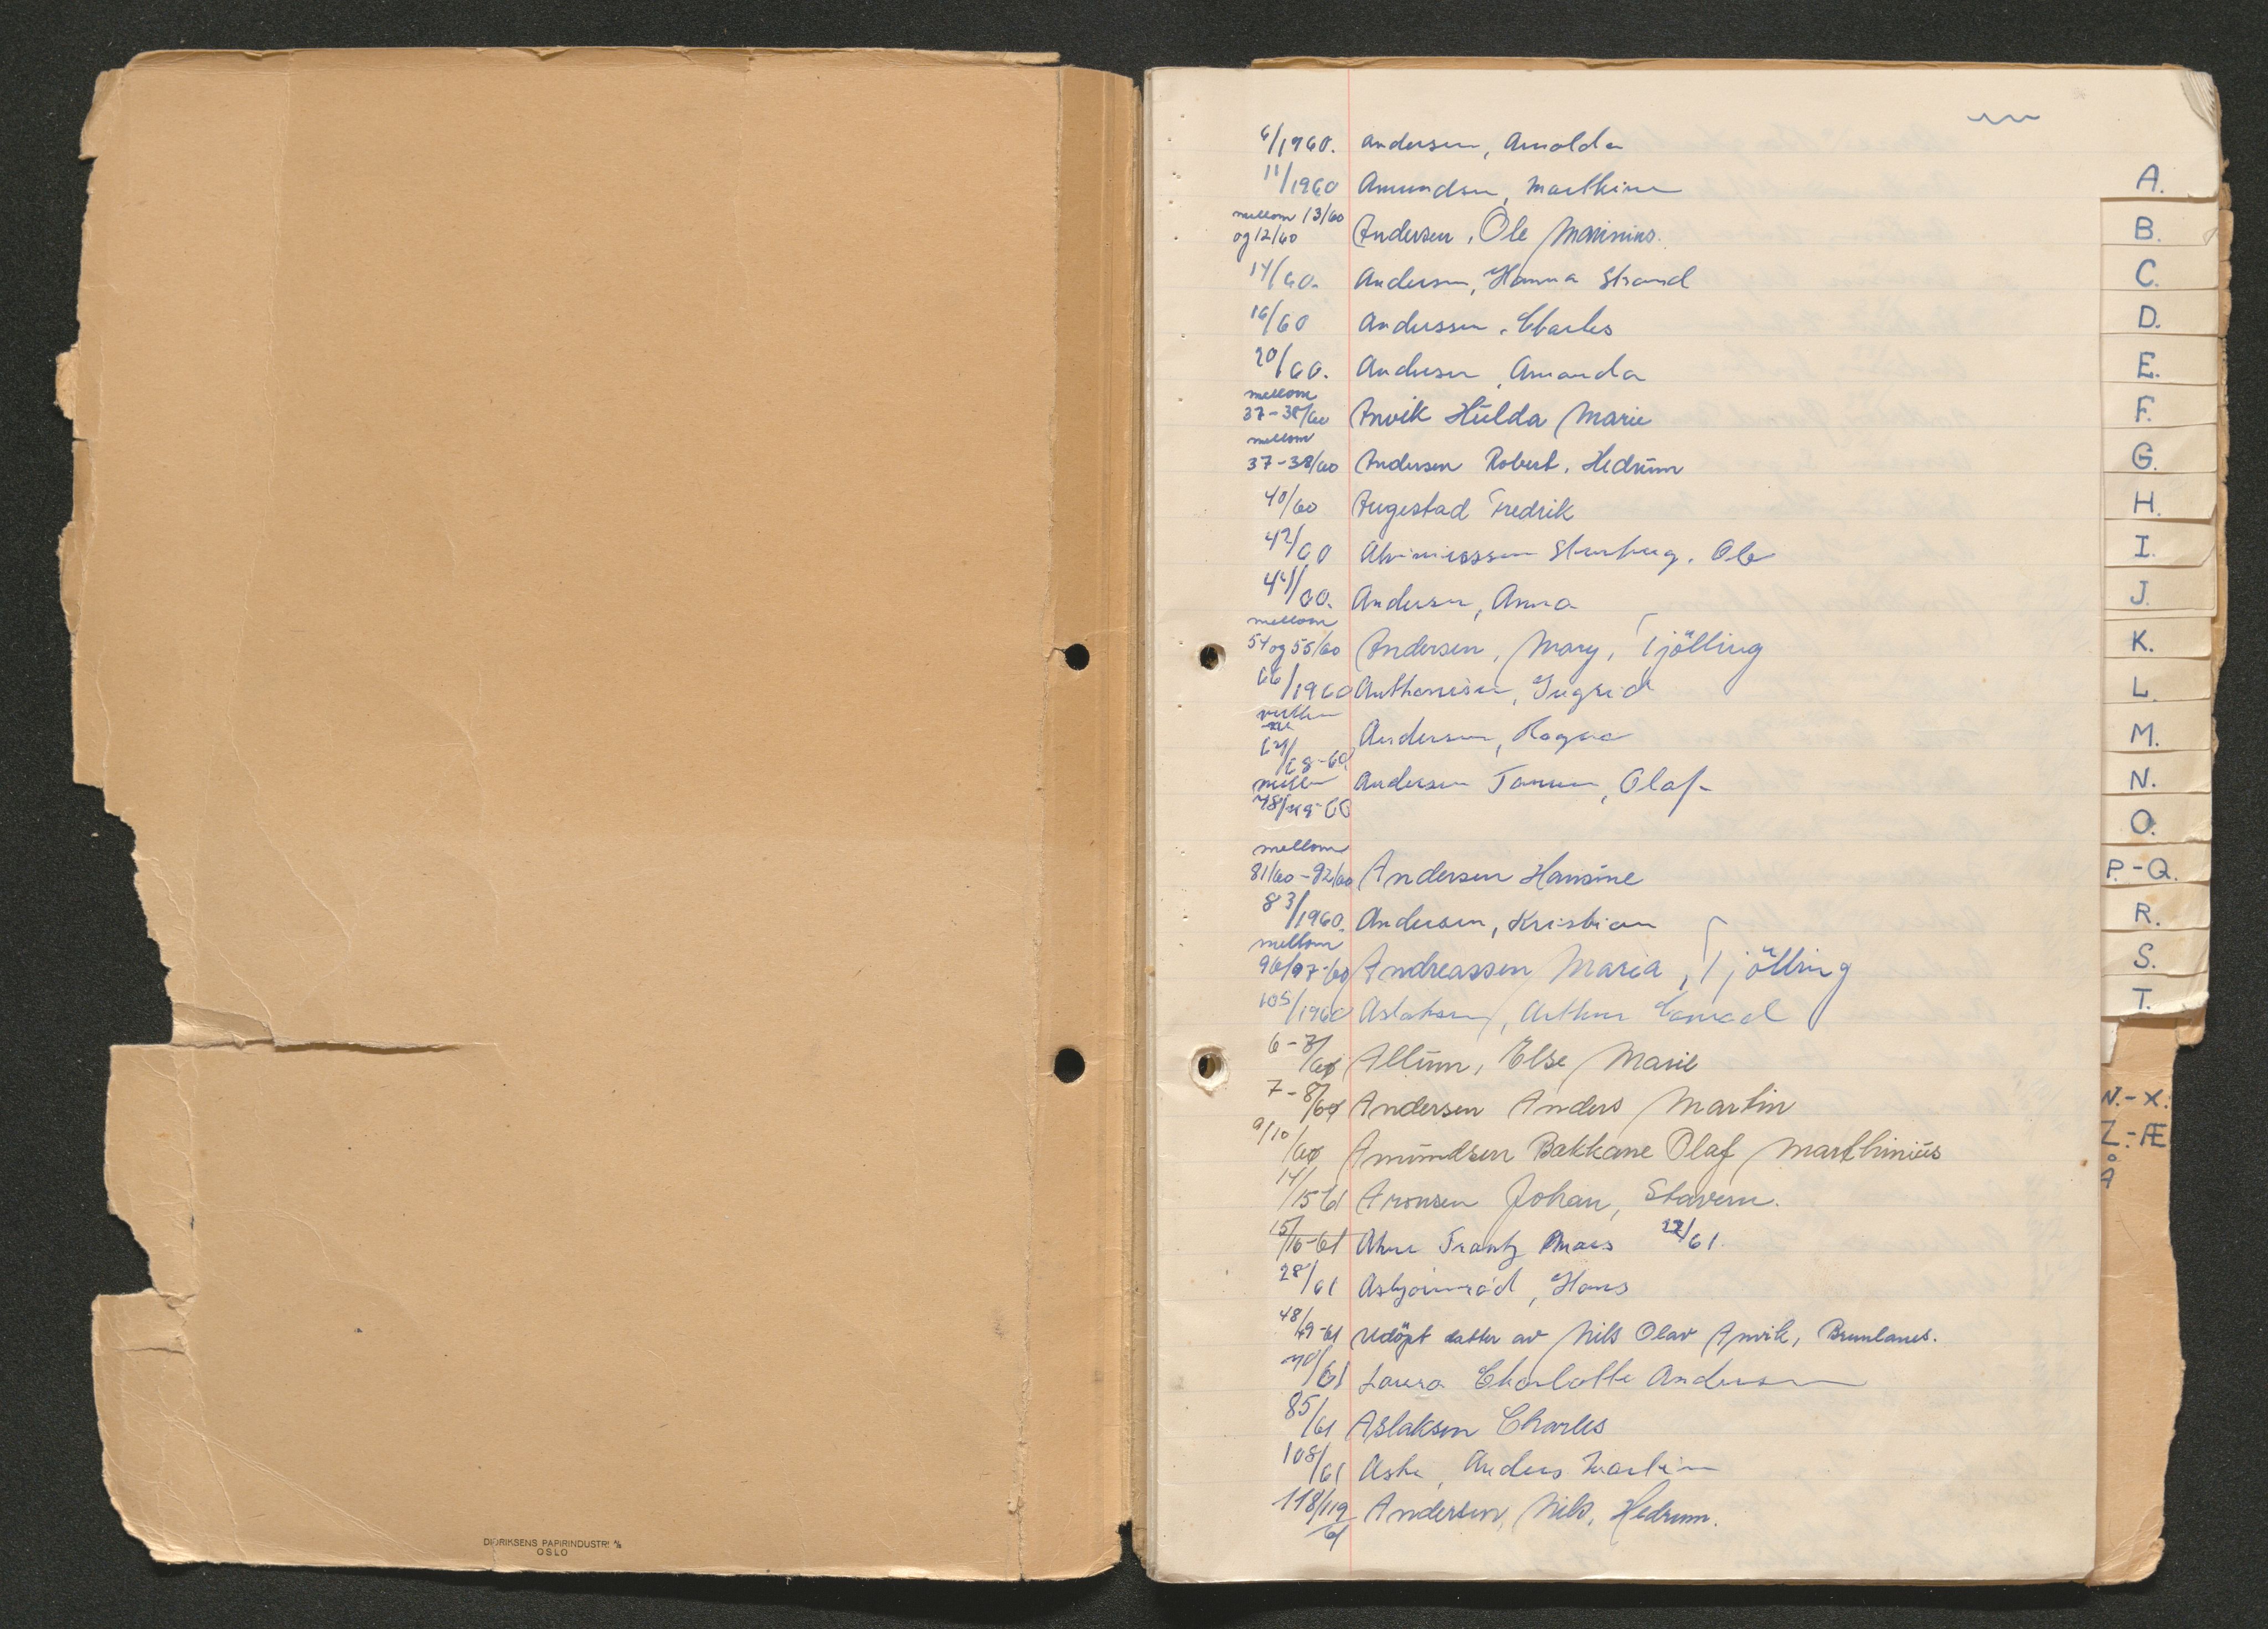 DIDRIKSENS PAPIRINDUSTRI A/S
OSLO
6/1960. Andersen, Arnolda
11/1960 Amundsen, Marthine
mellom 13/60
og 12/60 Andersen, Ole Marinius.
14/60. Andersen, Hanna Strand
16/60 Anderssen, Charles
20/60. Andersen, Amanda
mellom
37-38/60 Anvik Hulda Marie
mellom
37-38/60 Andersen Robert, Hedrum
40/60 Augestad Fredrik
42/60 Ole
44/60. Andersen, Anna
mellom
54 og 55/60 Andersen, Mary, Tjölling
66/1960 Anthonisen, Ingrid
Andersen, Ragna
68-60
mellem Andersen Tanum, Olaf
78/79-60
mellom
81/60-82/60 Andersen Hansine
83/1960. Andersen, Kristian
mellom
96/97-60 Andreassen Maria, Tjölling
105/1960 Aslaksen, Arthur Conrad
6-7/60 Allum, Else Marie
7-8/60 Andersen Anders Martin
9/10/60 Amundsen Bakkane Olaf Marthinius
14/15 61 Aronsen Johan, Stavern.
15/16-61 Frantz 22/61.
28/61 Asbjørnrød, Hans
48/49-61 Udöpt datter av Nils Olav Anvik, Brunlanes.
70/61 Laura Charlotte Andersen
85/61 Aslaksen Charles
108/61 Aske, Anders Martin
118/119 Andersen, Nils, Hedrum.
61
A.
B.
C.
D.
E.
F.
G.
H.
I.
J.
K.
L.
M.
N.
O.
P.-Q.
R.
S.
T.
-X.
Z.-Æ
Å